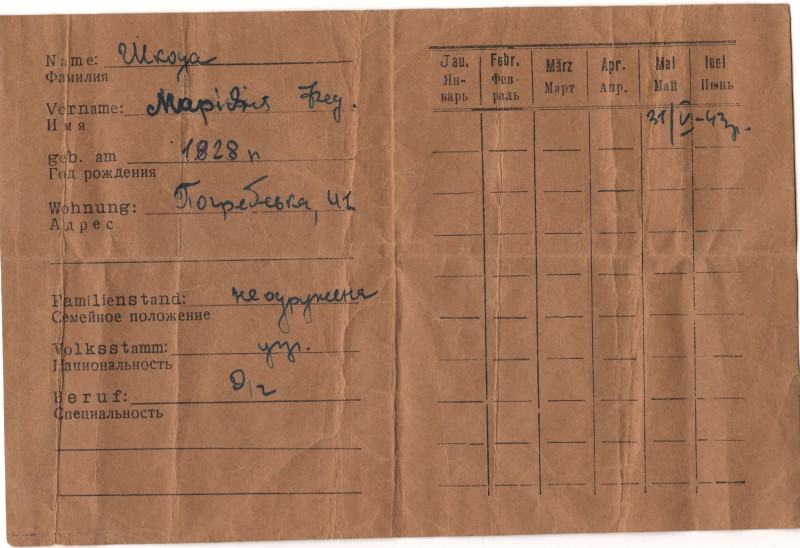 Name: Шкода
Фамилия
Vorname: Марія Фед.
Имя
geb. am 1828 р
Год рождения
Wohnung: Погребська, 41
Адрес
Familienstand: неодружена
Семейное положение
Volksstamm: укр.
Национальность
Beruf: д/г
Специальность
Jau. Febr. März Apr. Mai Iuni
Ян- Фев- Март Апр. Май Июнь
варь раль
31/V-43р.